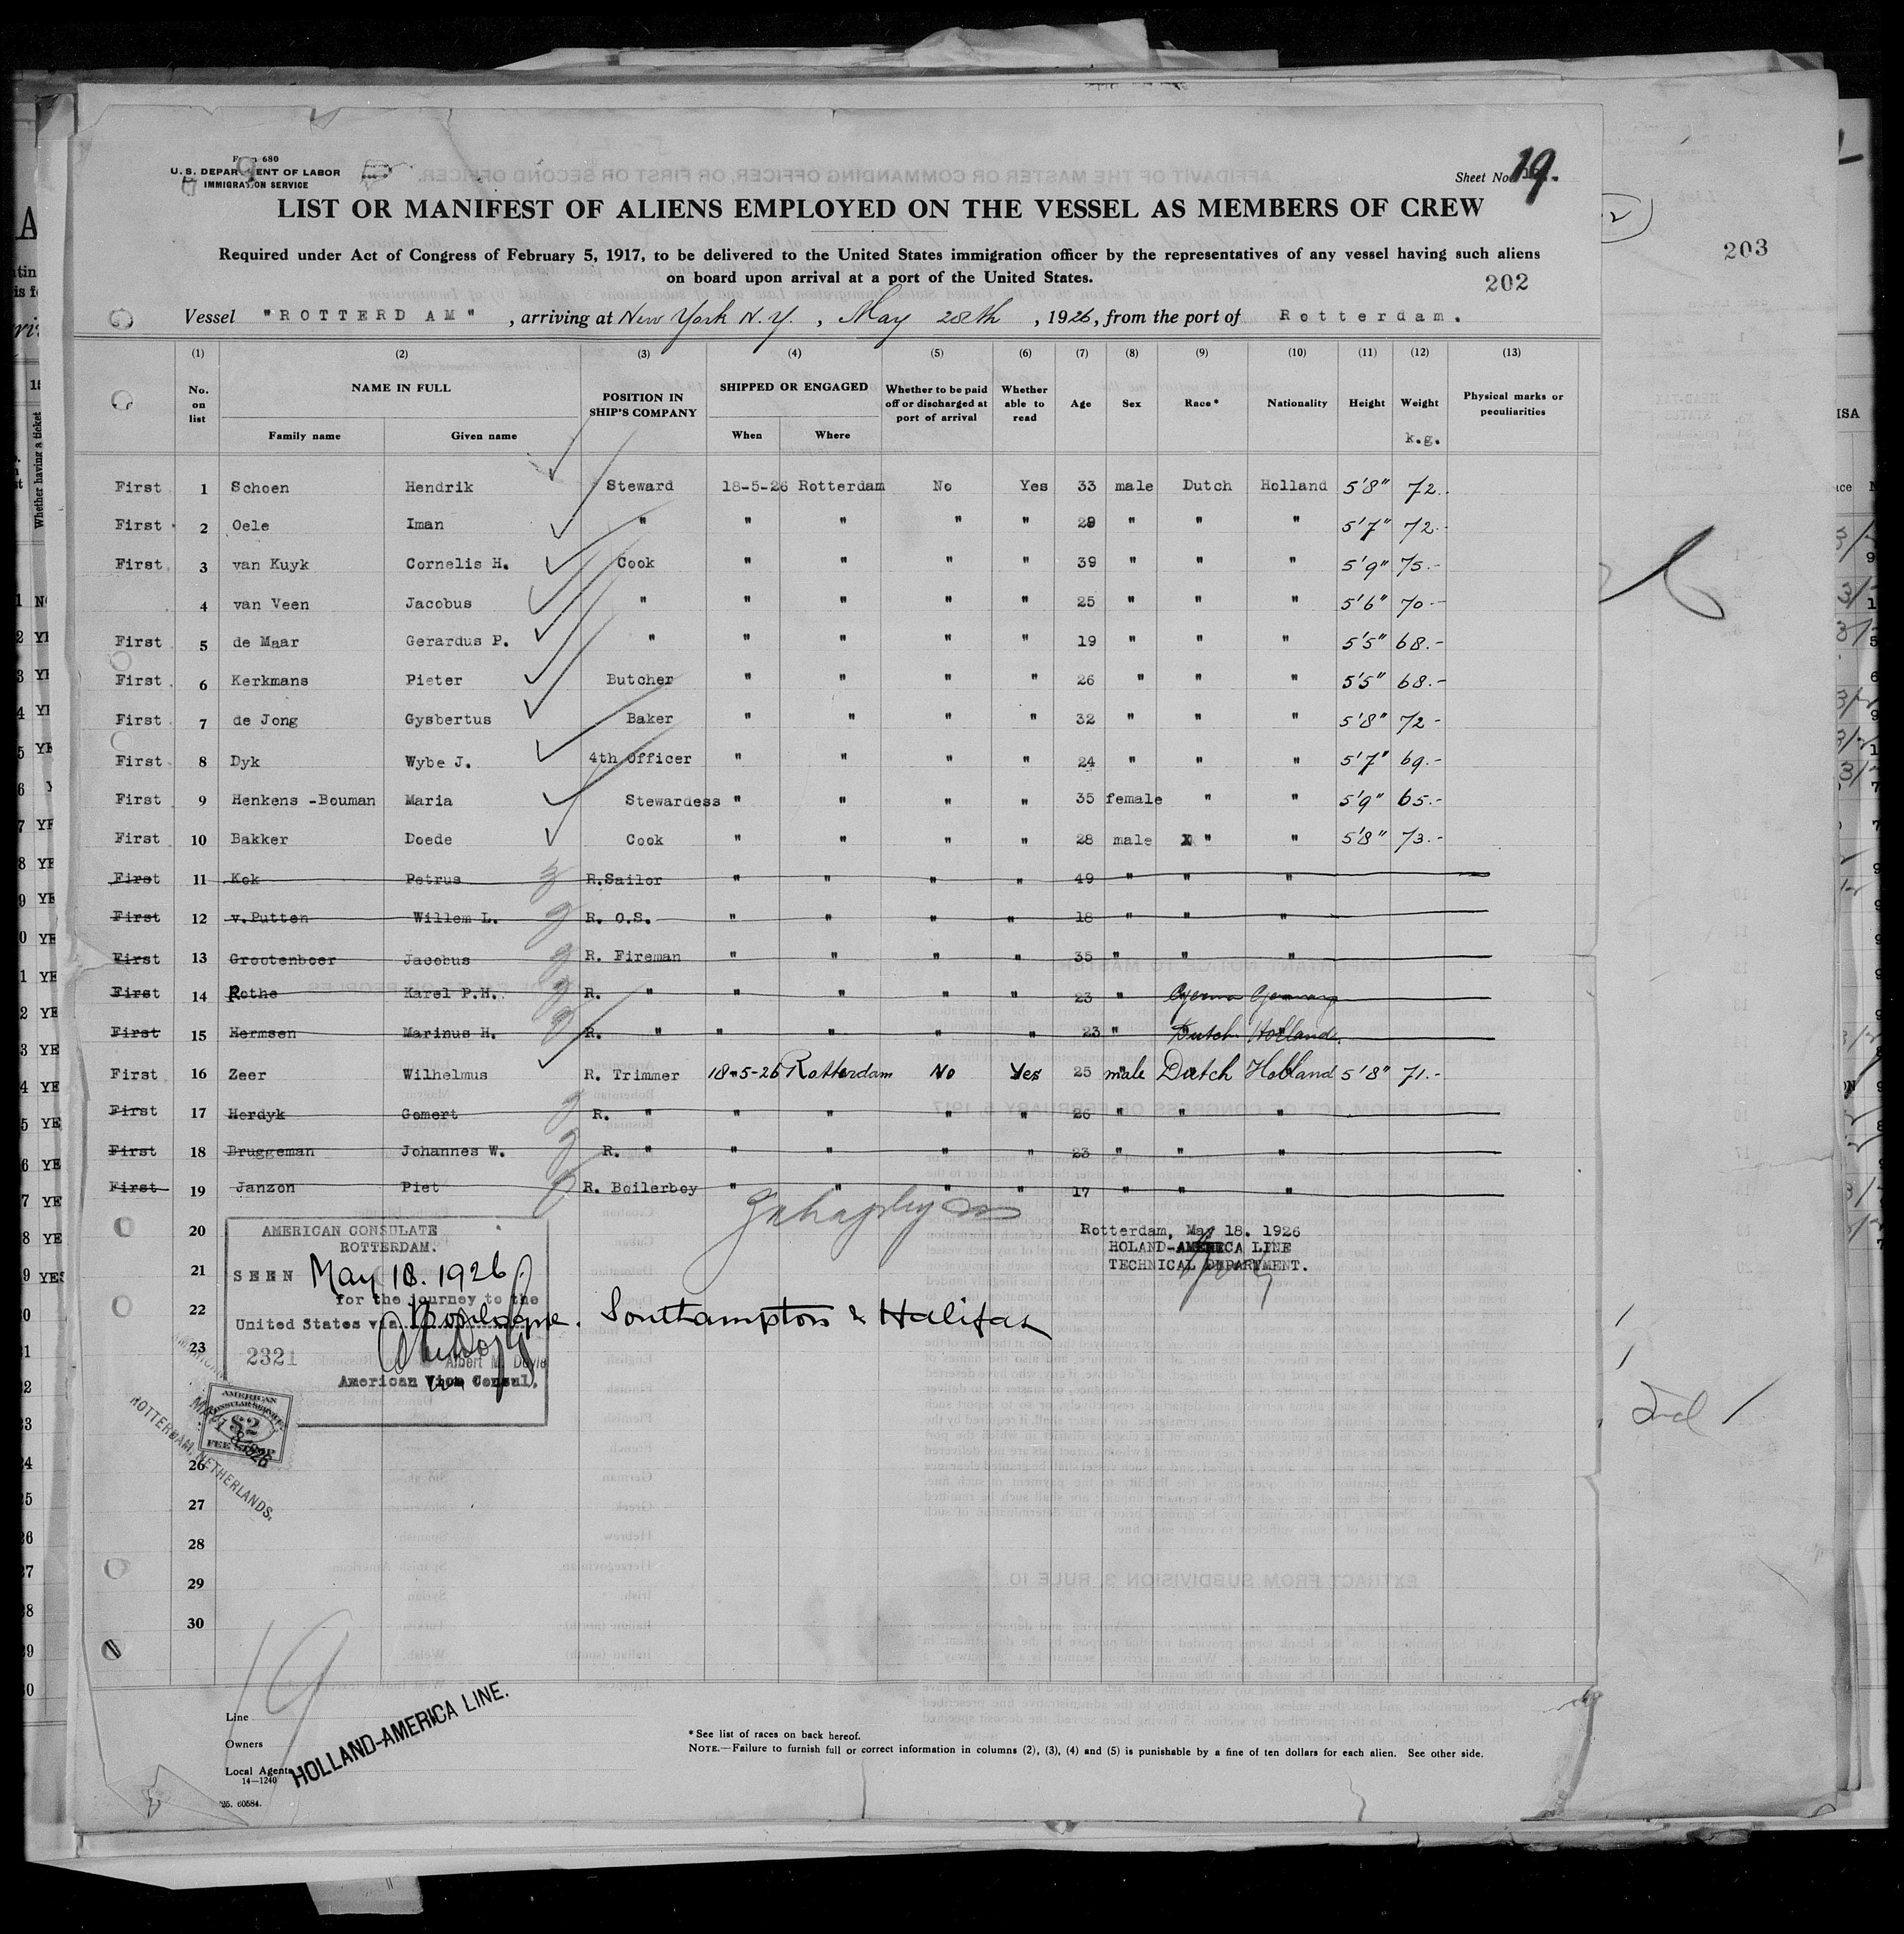 Form 680
U. S. DEPARTMENT OF LABOR
IMMIGRATION SERVICE
Sheet No. 19.
LIST OR MANIFEST OF ALIENS EMPLOYED ON THE VESSEL AS MEMBERS OF CREW
203
Required under Act of Congress of February 5, 1917, to be delivered to the United States immigration officer by the representatives of any vessel having such aliens
on board upon arrival at a port of the United States.
202
Vessel "ROTTERDAM" , arriving at New York N.Y. , May 28th , 1926, from the port of Rotterdam.
(1) (2) (3) (4) (5) (6) (7) (8) (9) (10) (11) (12) (13)
No. on list NAME IN FULL Family name Given name POSITION IN SHIP'S COMPANY SHIPPED OR ENGAGED When Where Whether to be paid off or discharged at port of arrival Whether able to read Age Sex Race* Nationality Height Weight k.g. Physical marks or peculiarities
First 1 Schoen Hendrik Steward 18-5-26 Rotterdam No Yes 33 male Dutch Holland 5'8" 72.-
First 2 Oele Iman " " " " " 29 " " " 5'7" 72.-
First 3 van Kuyk Cornelis H. Cook " " " " 39 " " " 5'9" 75.-
4 van Veen Jacobus " " " " " 25 " " " 5'6" 70.-
First 5 de Maar Gerardus P. " " " " " 19 " " " 5'5" 68.-
First 6 Kerkmans Pieter Butcher " " " " 26 " " " 5'5" 68.-
First 7 de Jong Gysbertus Baker " " " " 32 " " " 5'8" 72-
First 8 Dyk Wybe J. 4th Officer " " " " 24 " " " 5'7" 69.-
First 9 Henkens -Bouman Maria Stewardess " " " " 35 female " " 5'9" 65.-
First 10 Bakker Doede Cook " " " " 28 male " " 5'8" 73.-
First 11 Kok Petrus R.Sailor " " " " 49 " " "
First 12 v.Putten Willem L. R. O.S. " " " " 18 " " "
First 13 Grootenboer Jacobus R. Fireman " " " " 35 " " "
First 14 Rothe Karel P.H. R. " " " " " 23 " German Germany
First 15 Hermsen Marinus H. R. " " " " " 23 " Dutch Holland
First 16 Zeer Wilhelmus R. Trimmer 18-5-26 Rotterdam No Yes 25 male Dutch Holland 5'8" 71.-
First 17 Herdyk Gomert R. " " " " " 26 " " "
First 18 Bruggeman Johannes W. R. " " " " " 23 " " "
First 19 Janzon Piet R. Boilerboy " " " " 17 " " "
20
21
22
23
26
27
28
29
30
AMERICAN CONSULATE
ROTTERDAM.
SEEN May 18. 1926
for the journey to the
United States via Boulogne. Southampton & Halifax
2321
Albert M. Doyle
American Vice Consul.
AMERICAN
CONSULAR SERVICE
$2
FEE STAMP
MAY 18 1926
ROTTERDAM, NETHERLANDS.
Rotterdam, May 18. 1926
HOLAND-AMERICA LINE
TECHNICAL DEPARTMENT.
2nd
19
Line
Owners
Local Agents
HOLLAND-AMERICA LINE.
14—1240
'25. 60584.
*See list of races on back hereof.
NOTE.—Failure to furnish full or correct information in columns (2), (3), (4) and (5) is punishable by a fine of ten dollars for each alien. See other side.